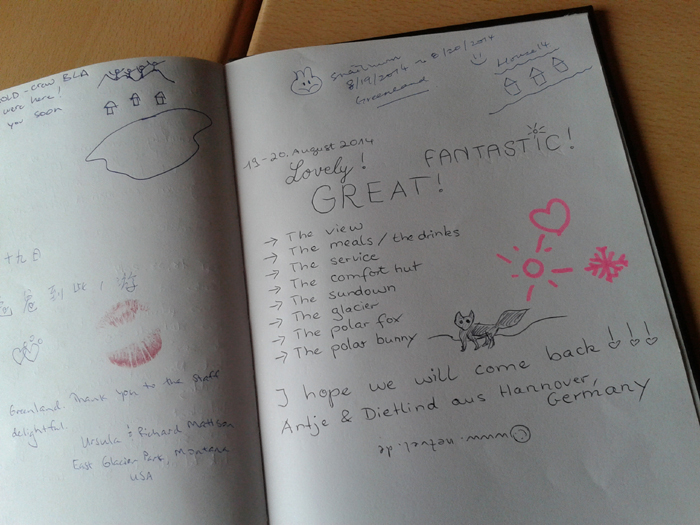 OLD-crew BLA
were here!
you soon
十九日
爸爸到此一游
Grønland. Thank you to the staff
delightful.
Ursula & Richard Mattson
East Glacier Park, Montana
USA
8/19/2014 ~ 8/20/2014
Greenland
House 14
19-20. August 2014
Lovely!
FANTASTIC!
GREAT!
→ The view
→ The meals / the drinks
→ The service
→ The comfort hut
→ The sundown
→ The glacier
→ The polar fox
→ The polar bunny
I hope we will come back!!!
Antje & Dietlind aus Hannover,
Germany